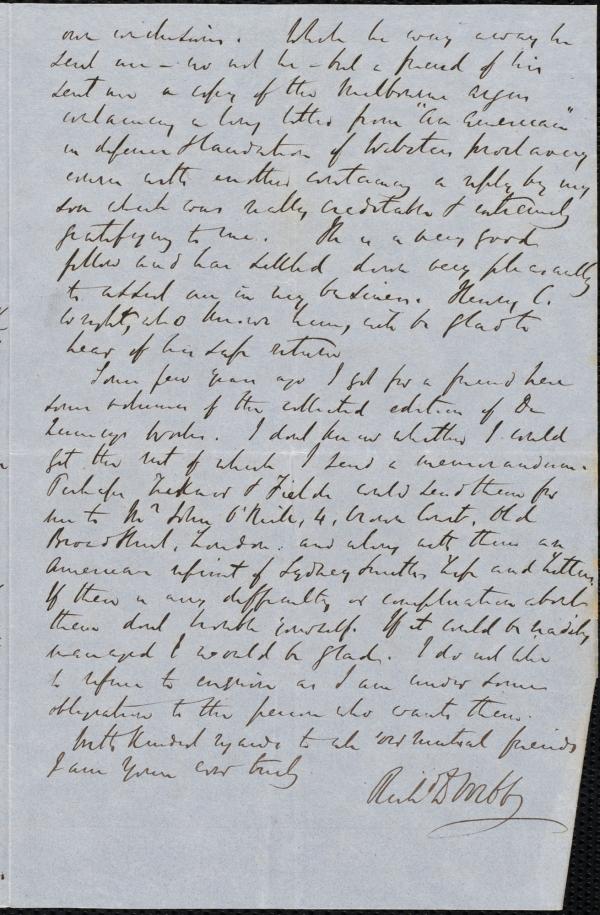 our conclusions. While he was away he
sent me - no not he - but a friend of his
sent me a copy of the Melbourne Argus
containing a long letter from "An American"
in defence & laudation of Websters proslavery
course with another containing a reply by my
son which was really creditable & extremely
gratifying to me. He is a very good
fellow and has settled down very pleasantly
to assist me in my business. Henry C.
Wright, who knows him, will be glad to
hear of his safe return
Some few years ago I got for a friend here
some volumes of the collected edition of De
Quinceys Works. I dont know whether I could
get the rest of which I send a memorandum.
Perhaps Ticknor & Fields could send them for
me to Mr John O'Neile, 4, Crown Court, Old
Broad Street, London. and along with them an
American reprint of Sydney Smiths Life and Letters.
If there is any difficulty or complication about
them dont trouble yourself. If it could be readily
managed I would be glad. I do not like
to refuse to enquire as I am under some
obligation to the person who wants them.
With kindest regards to all our mutual friends
I am Yours ever truly
Richd D Webb